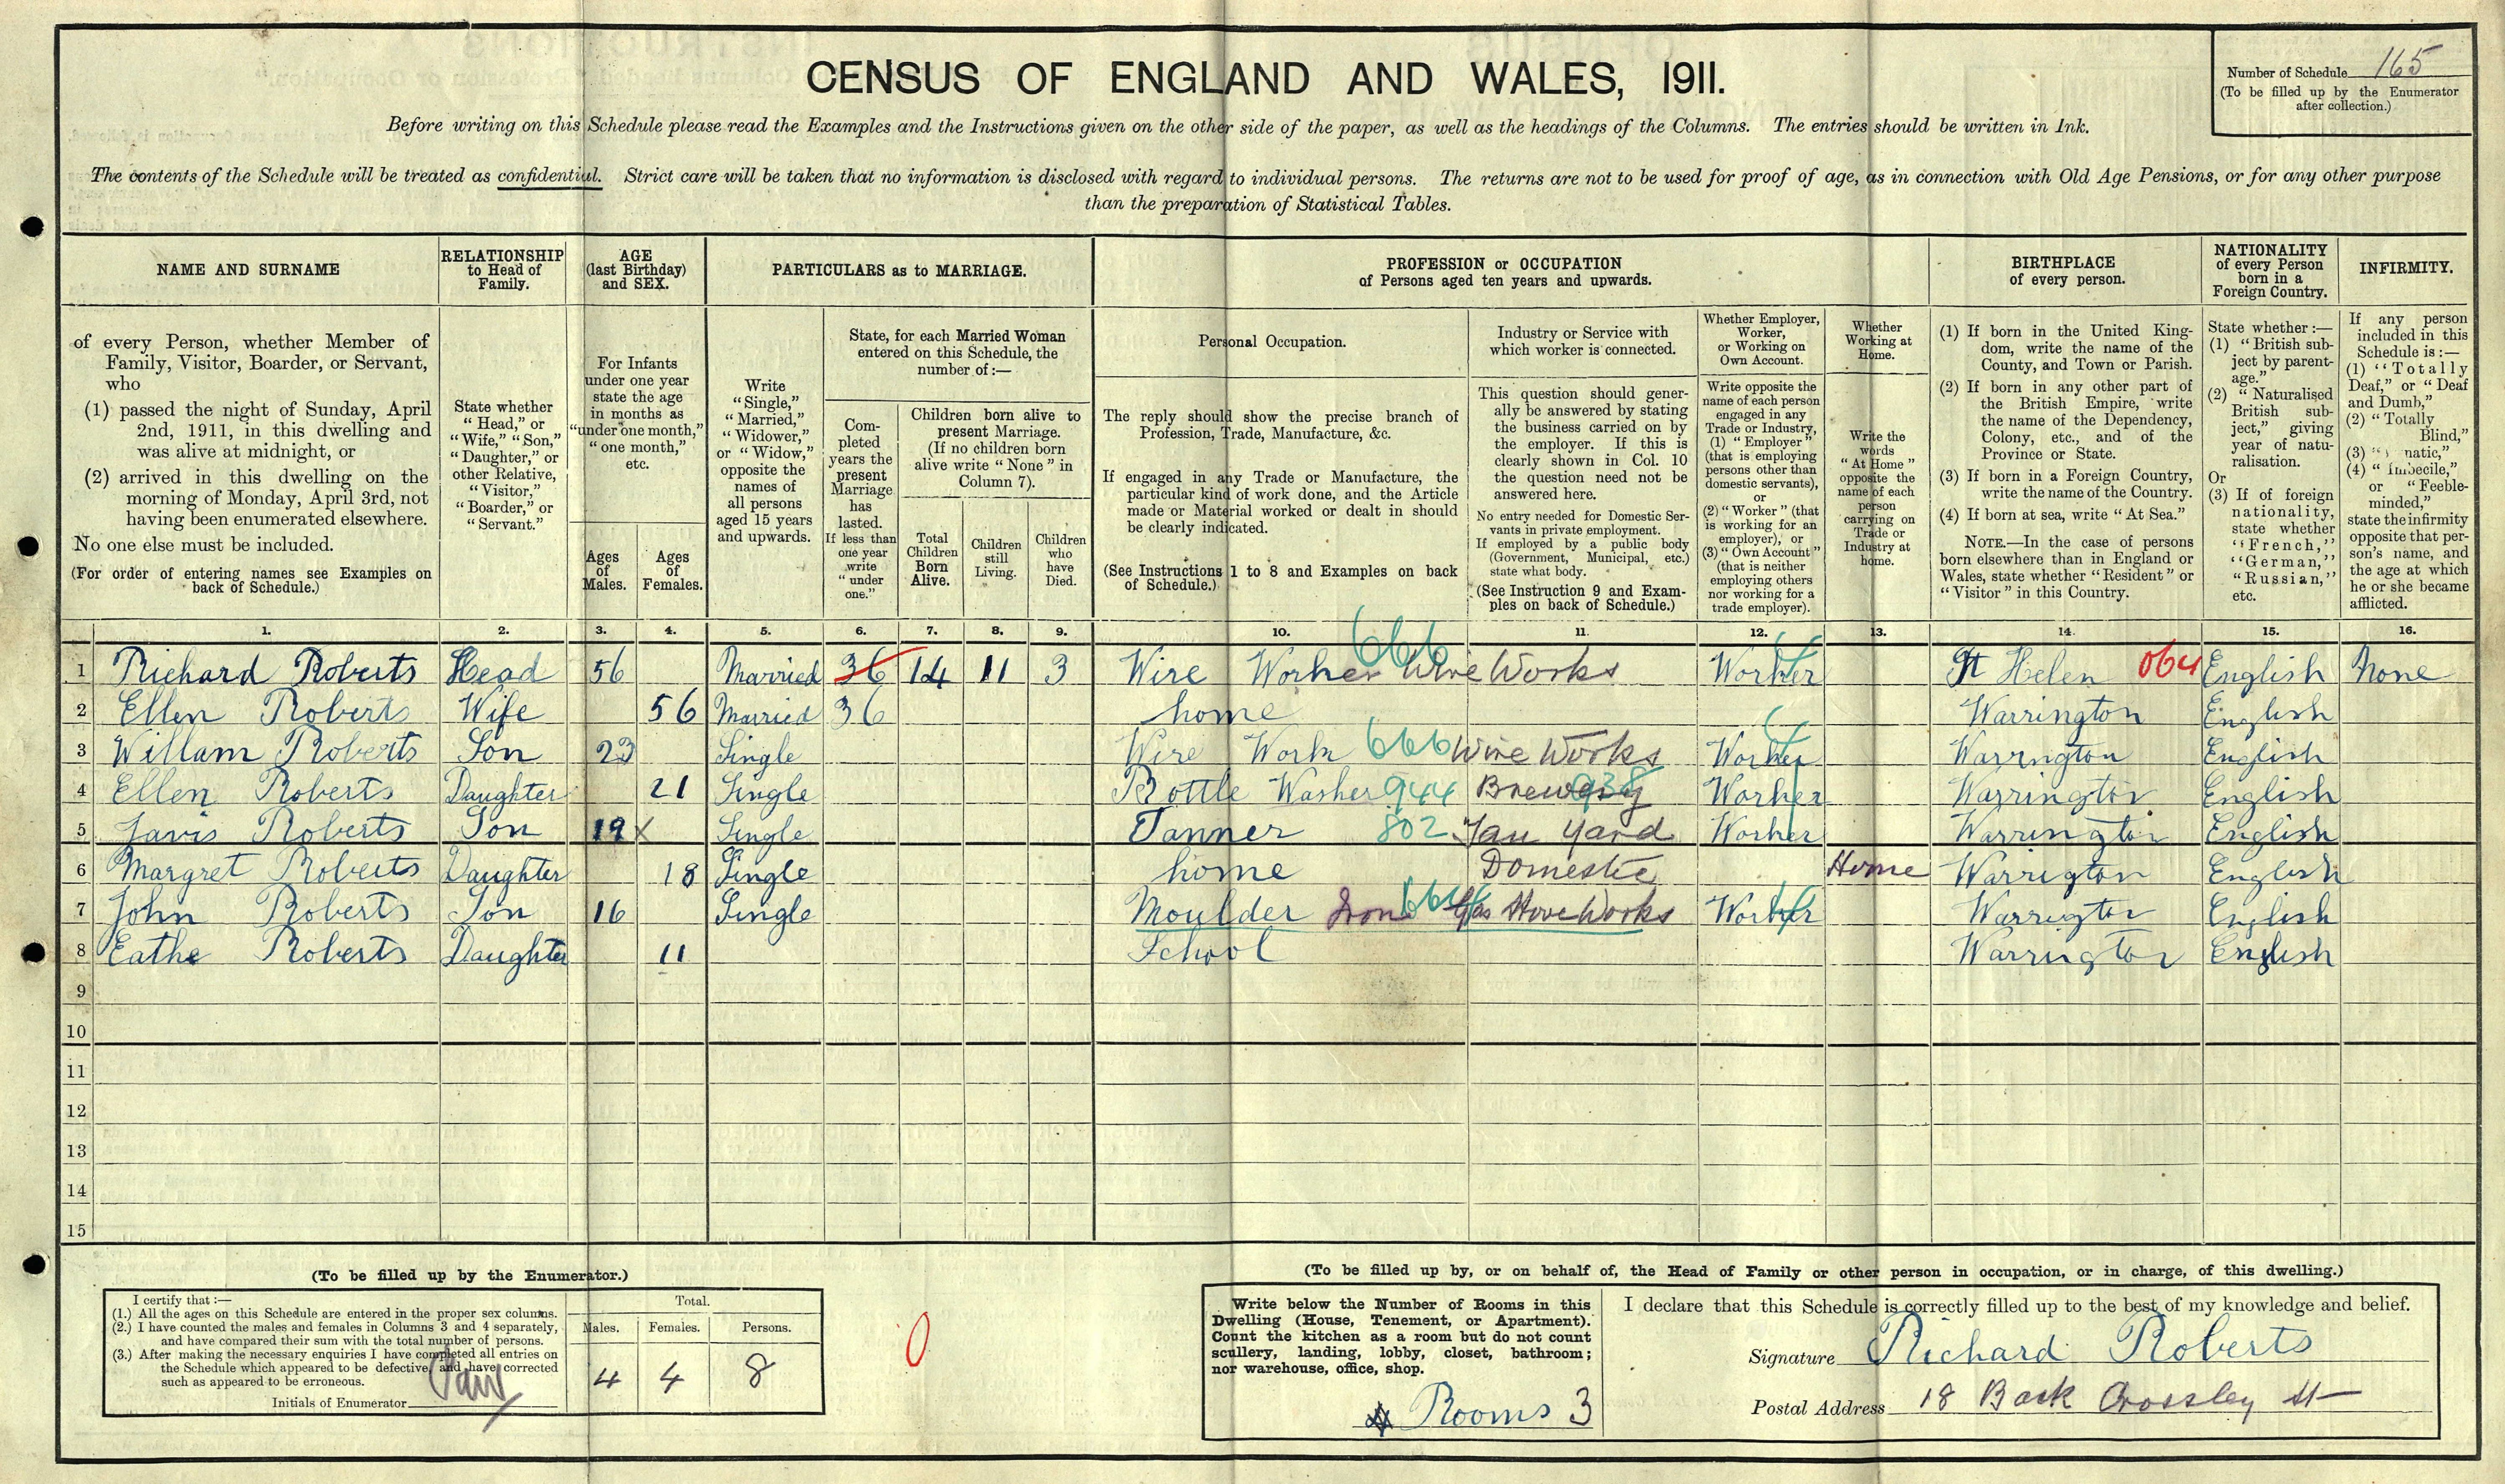 CENSUS OF ENGLAND AND WALES, 1911.
Number of Schedule 165
(To be filled up by the Enumerator
after collection.)
Before writing on this Schedule please read the Examples and the Instructions given on the other side of the paper, as well as the headings of the Columns. The entries should be written in Ink.
The contents of the Schedule will be treated as confidential. Strict care will be taken that no information is disclosed with regard to individual persons. The returns are not to be used for proof of age, as in connection with Old Age Pensions, or for any other purpose
than the preparation of Statistical Tables.
NAME AND SURNAME
of every Person, whether Member of
Family, Visitor, Boarder, or Servant,
who
(1) passed the night of Sunday, April
2nd, 1911, in this dwelling and
was alive at midnight, or
(2) arrived in this dwelling on the
morning of Monday, April 3rd, not
having been enumerated elsewhere.
No one else must be included.
(For order of entering names see Examples on
back of Schedule.)
RELATIONSHIP
to Head of
Family.
State whether
"Head," or
"Wife," "Son,"
"Daughter," or
other Relative,
"Visitor,"
"Boarder," or
"Servant."
AGE
(last Birthday)
and SEX.
For Infants
under one year
state the age
in months as
"under one month,"
"one month,"
etc.
Ages
of
Males.
Ages
of
Females.
PARTICULARS as to MARRIAGE.
Write
"Single,"
"Married,"
"Widower,"
or "Widow,"
opposite the
names of
all persons
aged 15 years
and upwards.
State, for each Married Woman
entered on this Schedule, the
number of:—
Com-
pleted
years the
present
Marriage
has
lasted.
If less than
one year
write
"under
one."
Children born alive to
present Marriage.
(If no children born
alive write "None" in
Column 7).
Total
Children
Born
Alive.
Children
still
Living.
Children
who
have
Died.
PROFESSION or OCCUPATION
of Persons aged ten years and upwards.
Personal Occupation.
The reply should show the precise branch of
Profession, Trade, Manufacture, &c.
If engaged in any Trade or Manufacture, the
particular kind of work done, and the Article
made or Material worked or dealt in should
be clearly indicated.
(See Instructions 1 to 8 and Examples on back
of Schedule.)
Industry or Service with
which worker is connected.
This question should gener-
ally be answered by stating
the business carried on by
the employer. If this is
clearly shown in Col. 10
the question need not be
answered here.
No entry needed for Domestic Ser-
vants in private employment.
If employed by a public body
(Government, Municipal, etc.)
state what body.
(See Instruction 9 and Exam-
ples on back of Schedule.)
Whether Employer,
Worker,
or Working on
Own Account.
Write opposite the
name of each person
engaged in any
Trade or Industry,
(1) "Employer"
(that is employing
persons other than
domestic servants),
or
(2) "Worker" (that
is working for an
employer), or
(3) "Own Account"
(that is neither
employing others
nor working for a
trade employer).
Whether
Working at
Home.
Write the
words
"At Home"
opposite the
name of each
person
carrying on
Trade or
Industry at
home.
BIRTHPLACE
of every person.
(1) If born in the United King-
dom, write the name of the
County, and Town or Parish.
(2) If born in any other part of
the British Empire, write
the name of the Dependency,
Colony, etc., and of the
Province or State.
(3) If born in a Foreign Country,
write the name of the Country.
(4) If born at sea, write "At Sea."
NOTE.—In the case of persons
born elsewhere than in England or
Wales, state whether "Resident" or
"Visitor" in this Country.
NATIONALITY
of every Person
born in a
Foreign Country.
State whether:—
(1) "British sub-
ject by parent-
age."
(2) "Naturalised
British sub-
ject," giving
year of natu-
ralisation.
Or
(3) If of foreign
nationality,
state whether
"French,"
"German,"
"Russian,"
etc.
INFIRMITY.
If any person
included in this
Schedule is:—
(1) "Totally
Deaf," or "Deaf
and Dumb,"
(2) "Totally
Blind,"
(3)
(4) "Imbecile,"
or "Feeble-
minded,"
state the infirmity
opposite that per-
son's name, and
the age at which
he or she became
afflicted.
1. 2. 3. 4. 5. 6. 7. 8. 9. 10. 11. 12. 13. 14. 15. 16.
1 Richard Roberts Head 56 Married 36 14 11 3 Wire Worker 666 Wire Works Worker St Helen 064 English None
2 Ellen Roberts Wife 56 Married 36 home Warrington English
3 Willam Roberts Son 23 Single Wire Work 666 Wire Works Worker Warrington English
4 Ellen Roberts Daughter 21 Single Bottle Washer 944 Brewery 938 Worker Warrington English
5 Javis Roberts Son 19 X Single Tanner 802 Tan Yard Worker Warrington English
6 Margret Roberts Daughter 18 Single home Domestic Home Warrigton English
7 John Roberts Son 16 Single Moulder Iron Gas Stove Works Worker Warrington English
8 Eathe Roberts Daughter 11 School Warrington English
9
10
11
12
13
14
15
(To be filled up by the Enumerator.)
I certify that:—
(1.) All the ages on this Schedule are entered in the proper sex columns.
(2.) I have counted the males and females in Columns 3 and 4 separately,
and have compared their sum with the total number of persons.
(3.) After making the necessary enquiries I have completed all entries on
the Schedule which appeared to be defective, and have corrected
such as appeared to be erroneous.
Initials of Enumerator
Total.
Males. Females. Persons.
4 4 8
0
(To be filled up by, or on behalf of, the Head of Family or other person in occupation, or in charge, of this dwelling.)
Write below the Number of Rooms in this
Dwelling (House, Tenement, or Apartment).
Count the kitchen as a room but do not count
scullery, landing, lobby, closet, bathroom;
nor warehouse, office, shop.
Rooms 3
I declare that this Schedule is correctly filled up to the best of my knowledge and belief.
Signature Richard Roberts
Postal Address 18 Back Crossley St